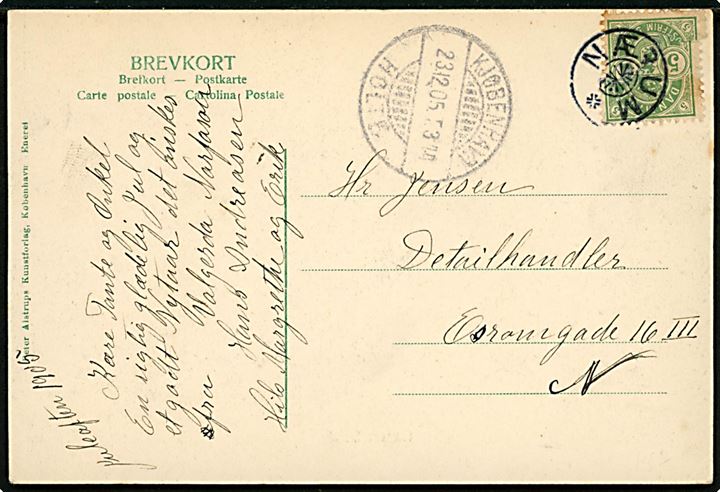 BREVKORT
Brefkort — Postkarte
Carte postale — Cartolina Postale
Peter Alstrups Kunstforlag, København Eneret
KJØBENHAVN
23.12.05. 7.3
HOLTE
NÆRUM
5
DAN
Hr Jensen
Detailhandler
Esromgade 16 III
N
Juleaften 1905
Kære Tante og Onkel
En rigtig glædelig Jul og
et godt Nytaar det ønskes
fra Valgerda
Hans Andreasen
Margrethe og Erik